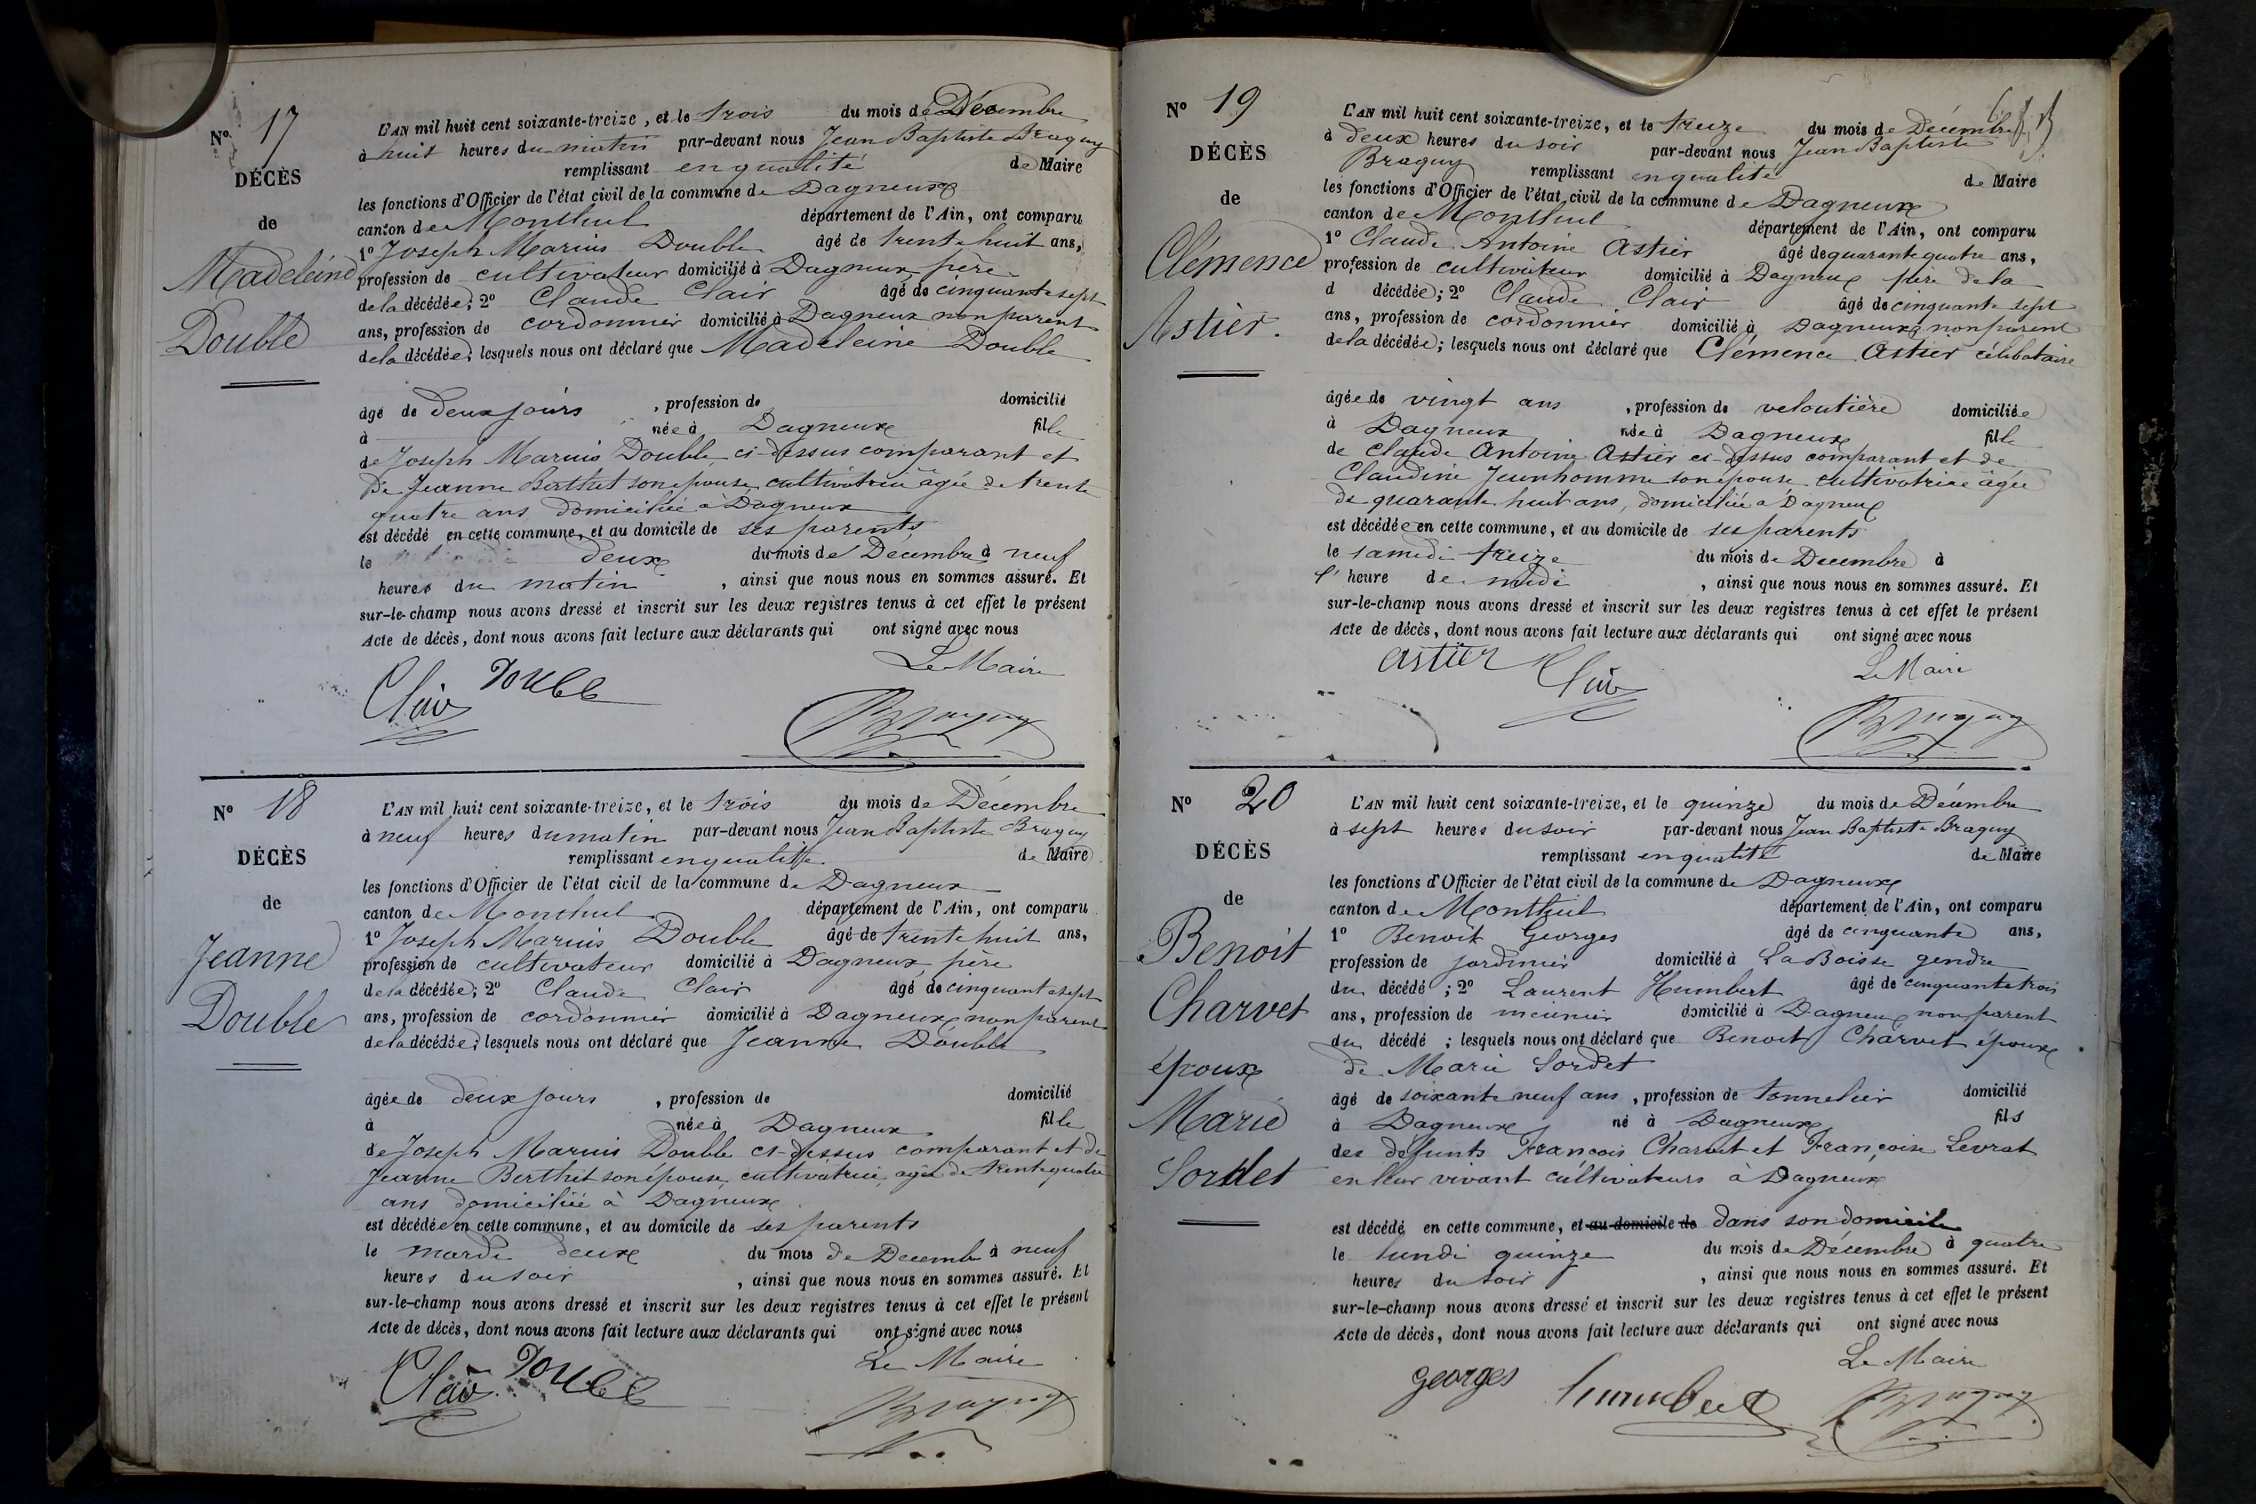 N° 17
DÉCÈS
de
Madeleine
Double
L'AN mil huit cent soixante-treize, et le trois du mois de Décembre
à huit heures du matin par-devant nous Jean Baptiste Braguy
remplissant en qualité de Maire
les fonctions d'Officier de l'état civil de la commune de Dagneux
canton de Montluel département de l'Ain, ont comparu
1° Joseph Marius Double âgé de trente huit ans,
profession de cultivateur domicilié à Dagneux père
de la décédée; 2° Claude Clair âgé de cinquante sept
ans, profession de cordonnier domicilié à Dagneux non parent
de la décédée; lesquels nous ont déclaré que Madeleine Double
âgé de deux jours , profession de domicilié
à née à Dagneux fille
de Joseph Marius Double ci-dessus comparant et
de Jeanne Berthet son épouse cultivatrice âgée de trente
quatre ans domiciliée à Dagneux
est décédé en cette commune, et au domicile de ses parents
le deux du mois de Décembre à neuf
heures du matin , ainsi que nous nous en sommes assuré. Et
sur-le-champ nous avons dressé et inscrit sur les deux registres tenus à cet effet le présent
Acte de décès, dont nous avons fait lecture aux déclarants qui ont signé avec nous
Le Maire
Clair Double
Braguy
N° 18
DÉCÈS
de
Jeanne
Double
L'AN mil huit cent soixante-treize, et le trois du mois de Décembre
à neuf heures du matin par-devant nous Jean Baptiste Braguy
remplissant en qualité de Maire
les fonctions d'Officier de l'état civil de la commune de Dagneux
canton de Montluel département de l'Ain, ont comparu
1° Joseph Marius Double âgé de trente huit ans,
profession de cultivateur domicilié à Dagneux père
de la décédée; 2° Claude Clair âgé de cinquante sept
ans, profession de cordonnier domicilié à Dagneux non parent
de la décédée; lesquels nous ont déclaré que Jeanne Double
âgée de deux jours , profession de domicilié
à née à Dagneux fille
de Joseph Marius Double ci-dessus comparant et de
Jeanne Berthet son épouse cultivatrice, agée de trente quatre
ans domiciliée à Dagneux
est décédée en cette commune, et au domicile de ses parents
le mardi deux du mois de Decembre à neuf
heures du soir , ainsi que nous nous en sommes assuré. Et
sur-le-champ nous avons dressé et inscrit sur les deux registres tenus à cet effet le présent
Acte de décès, dont nous avons fait lecture aux déclarants qui ont signé avec nous
Le Maire
Clair Double
Braguy
N° 19
DÉCÈS
de
Clémence
Astier.
L'AN mil huit cent soixante-treize, et le treize du mois de Décembre
à deux heures du soir par-devant nous Jean Baptiste
Braguy remplissant en qualité de Maire
les fonctions d'Officier de l'état civil de la commune de Dagneux
canton de Montluel département de l'Ain, ont comparu
1° Claude Antoine Astier âgé de quarante quatre ans,
profession de cultivateur domicilié à Dagneux père de la
d décédée; 2° Claude Clair âgé de cinquante sept
ans, profession de cordonnier domicilié à Dagneux non parent
de la décédée; lesquels nous ont déclaré que Clémence Astier célibataire
âgée de vingt ans , profession de veloutière domiciliée
à Dagneux née à Dagneux fille
de Claude Antoine Astier ci-dessus comparant et de
Claudine Jeunhomme son épouse cultivatrice âgée
de quarante huit ans, domiciliée à Dagneux
est décédée en cette commune, et au domicile de ses parents
le samedi treize du mois de Decembre à
l'heure de midi , ainsi que nous nous en sommes assuré. Et
sur-le-champ nous avons dressé et inscrit sur les deux registres tenus à cet effet le présent
Acte de décès, dont nous avons fait lecture aux déclarants qui ont signé avec nous
Le Maire
astier Clair
Braguy
N° 20
DÉCÈS
de
Benoit
Charvet
époux
Marie
Sordet
L'AN mil huit cent soixante-treize, et le quinze du mois de Décembre
à sept heures du soir par-devant nous Jean Baptiste Braguy
remplissant en qualité de Maire
les fonctions d'Officier de l'état civil de la commune de Dagneux
canton de Montluel département de l'Ain, ont comparu
1° Benoit Georges âgé de cinquante ans,
profession de jardinier domicilié à La Boisse gendre
du décédé ; 2° Laurent Humbert âgé de cinquante trois
ans, profession de meunier domicilié à Dagneux non parent
du décédé ; lesquels nous ont déclaré que Benoit Charvet époux
de Marie Sordet
âgé de soixante neuf ans , profession de tonnelier domicilié
à Dagneux né à Dagneux fils
des défunts François Charvet et Françoise Levrat
en leur vivant cultivateurs à Dagneux
est décédé en cette commune, et au domicile de dans son domicile
le lundi quinze du mois de Décembre à quatre
heures du soir , ainsi que nous nous en sommes assuré. Et
sur-le-champ nous avons dressé et inscrit sur les deux registres tenus à cet effet le présent
Acte de décès, dont nous avons fait lecture aux déclarants qui ont signé avec nous
Le Maire
georges humbert
Braguy